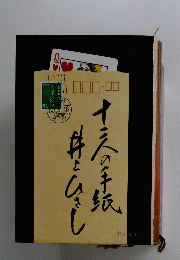 十二人の手紙
井上ひさし